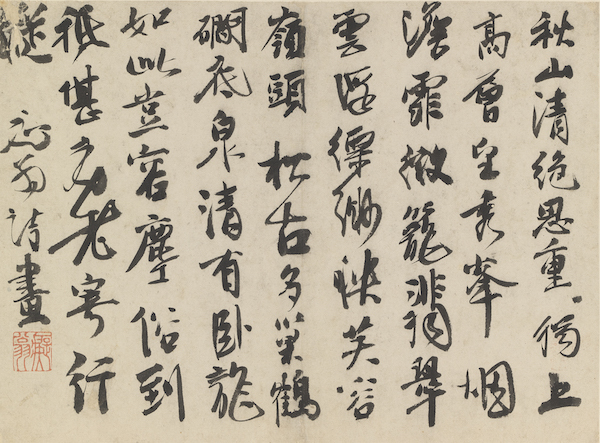 秋山清絶思重〻獨上
高層望秀峯烟
澹霏微籠翡翠
雲浮縹緲映芙容
嶺頭松古多巢鶴
磵底泉清有卧龍
如此豈容塵俗到
祗堪方老寄行
蹤
翁詩畫